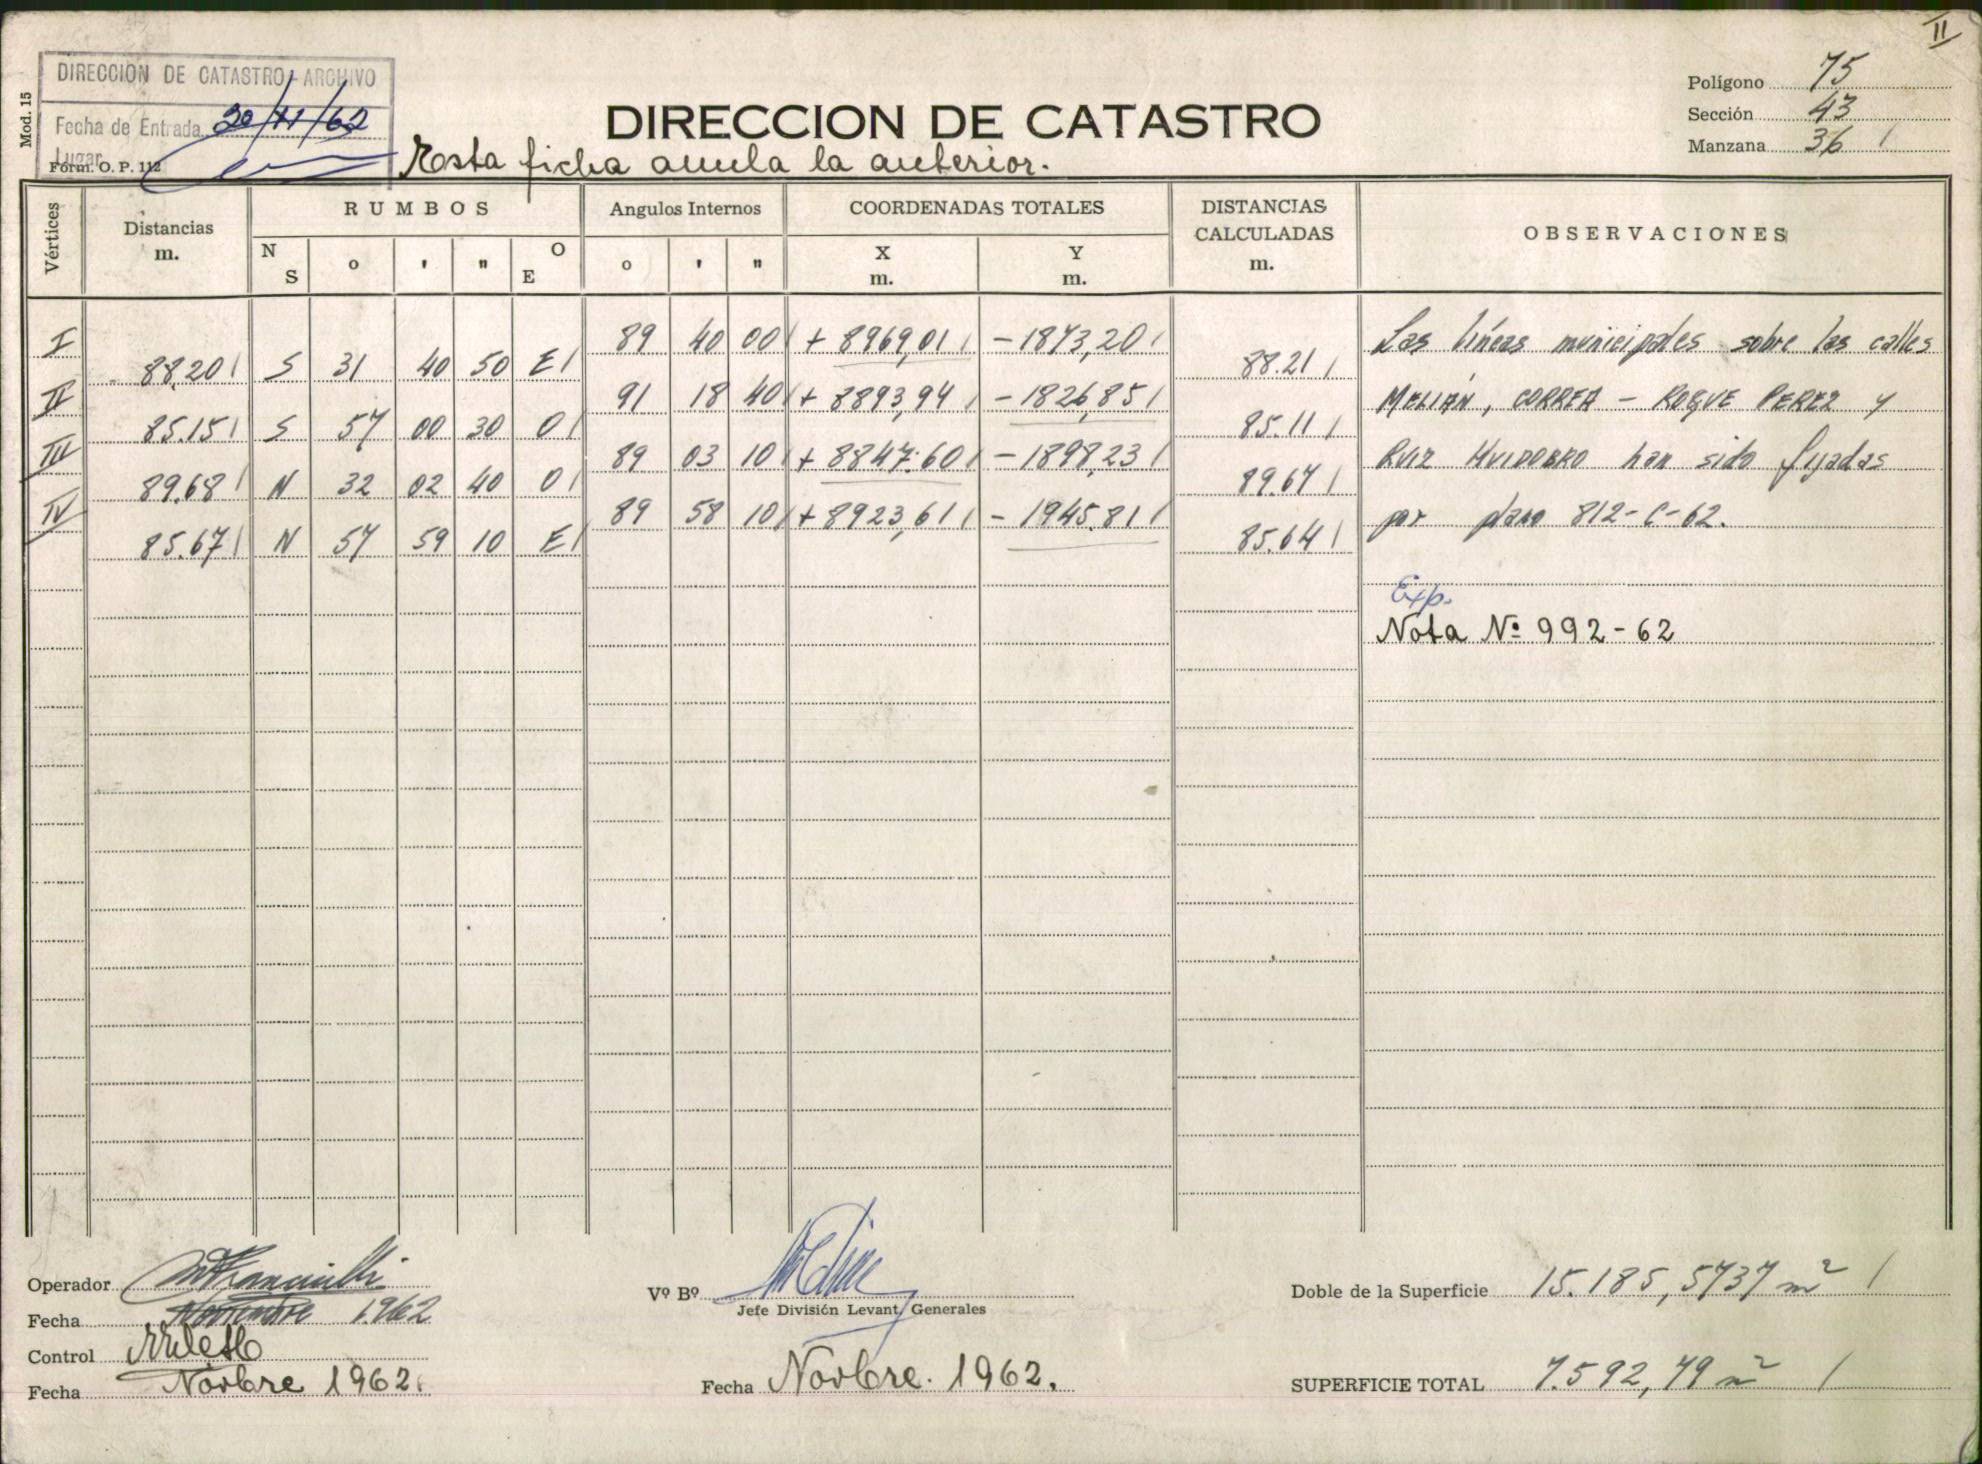 II
DIRECCION DE CATASTRO - ARCHIVO
Fecha de Entrada 30/11/62
Lugar
Mod. 15
Form. O. P. 112
DIRECCION DE CATASTRO
Esta ficha anula la anterior.
Polígono 75
Sección 43
Manzana 36
Vértices
Distancias m.
RUMBOS
N S
o ' "
O E
Angulos Internos
o ' "
COORDENADAS TOTALES
X m.
Y m.
DISTANCIAS CALCULADAS m.
OBSERVACIONES
I 89 40 00 + 8969,01 - 1873,20
88,20 S 31 40 50 E 88.21
II 91 18 40 + 8893,94 - 1826,85
85.15 S 57 00 30 O 85.11
III 89 03 10 + 8847.60 - 1898,23
89.68 N 32 02 40 O 89.67
IV 89 58 10 + 8923,61 - 1945.81
85.67 N 57 59 10 E 85.64
Las líneas municipales sobre las calles
MELIÁN, CORREA - ROQUE PEREZ y
RUIZ HUIDOBRO han sido fijadas
por plano 812-C-62.
Exp.
Nota Nº 992-62
Operador
Fecha Noviembre 1962
Control
Fecha Novbre 1962.
Vº Bº
Jefe División Levant. Generales
Fecha Novbre. 1962.
Doble de la Superficie 15.185,5737 m²
SUPERFICIE TOTAL 7.592,79 m²